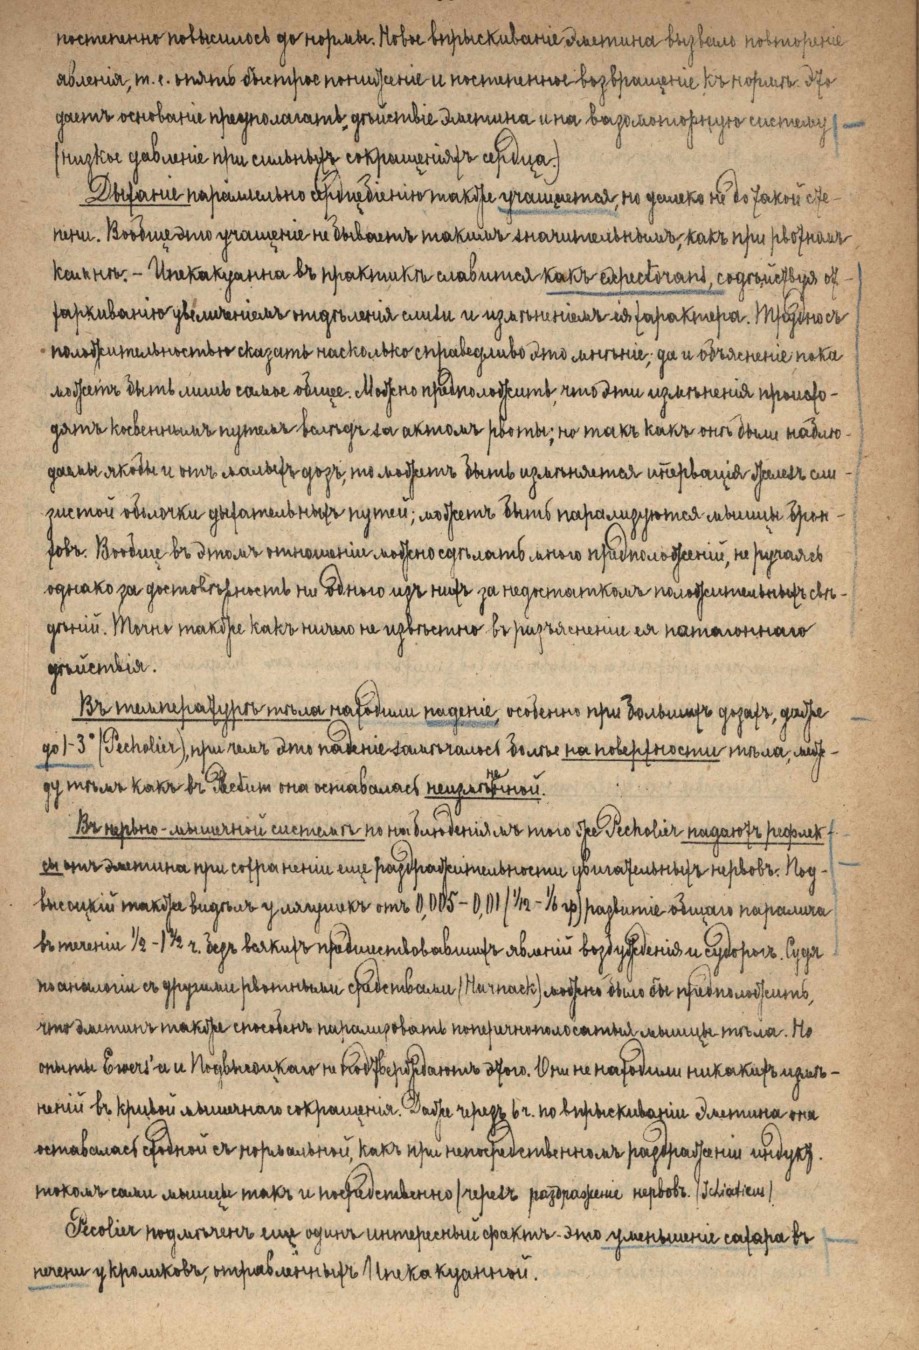 постепенно повысилось до нормы. Новое впрыскиваніе Эметина вызвало повтореніе
явленія, т. е. опять быстрое пониженіе и постепенное возвращеніе къ нормѣ. Это
даетъ основаніе предполагать, дѣйствіе Эметина и на вазомоторную систему
(низкое давленіе при сильныхъ сокращеніяхъ сердца.)
Дыханіе параллельно сердцебіенію также учащается, но далеко не до такой сте-
пени. Вообще это учащеніе не бываетъ такимъ значительнымъ, какъ при рвотномъ
камнѣ. – Ипекакуанна въ практикѣ славится какъ expectorans, содѣйствуя от-
харкиванію увеличеніемъ отдѣленія слизи и измѣненіемъ ея характера. Трудно съ
положительностью сказать насколько справедливо это мнѣніе; да и объясненіе пока
можетъ быть лишь самое общее. Можно предположить, что эти измѣненія происхо-
дятъ косвеннымъ путемъ вслѣдъ за актомъ рвоты; но такъ какъ онѣ были наблю-
даемы якобы и отъ малыхъ дозъ, то можетъ быть измѣняется инервація железъ сли-
зистой оболочки дыхательныхъ путей; можетъ быть парализуются мышцы брон-
ховъ. Вообще въ этомъ отношеніи можно сдѣлать много предположеній, не ручаясь
однако за достовѣрность ни одного изъ нихъ за недостаткомъ положительныхъ свѣ-
дѣній. Точно также какъ ничего не извѣстно въ разъясненіе ея потогоннаго
дѣйствія.
Въ температурѣ тѣла находили паденіе, особенно при большихъ дозахъ, даже
до 1-3° (Pecholier), при чемъ это паденіе замѣчалось болѣе на поверхности тѣла, меж-
ду тѣмъ какъ въ Rectum она оставалась неизмѣнной.
Въ нервно-мышечной системѣ по наблюденіямъ того же Pecholier падаютъ рефлек-
сы отъ эметина при сохраненіи еще раздражительности двигательныхъ нервовъ. Под-
высоцкій также видѣлъ у лягушекъ отъ 0,005–0,01 (1/12 – 1/6 гр) развитіе общаго паралича
въ теченіи 1/2 – 1 1/2 ч. безъ всякихъ предшествовавшихъ явленій возбужденія и судорогъ. Судя
по аналогіи съ другими рвотными средствами (Harnack) можно было бы предположить,
что эметинъ также способенъ парализовать поперечнополосатыя мышцы тѣла. Но
опыты Ewers'а и Подвысоцкаго не подтверждаютъ этого. Они не находили никакихъ измѣ-
неній въ кривой мышечнаго сокращенія. Даже черезъ 6 ч. по впрыскиваніи эметина она
оставалась сходной съ нормальной, какъ при непосредственномъ раздраженіи индукц.
токомъ самой мышцы такъ и посредственно (черезъ раздраженіе нервовъ. (Ischiaticus)
Pecolier подмѣченъ еще одинъ интересный фактъ - это уменьшеніе сахара въ
печени у кроликовъ, отравленныхъ Ипекакуанной.